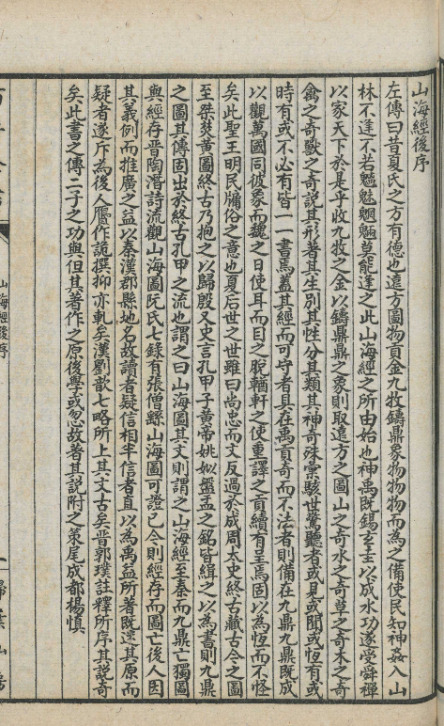 山海經後序
左傳曰昔夏氏之方有德也遠方圖物貢金九牧鑄鼎象物物物而為之備使民知神姦入山
林不逢不若魑魅魍魎莫能逢之此山海經之所由始也神禹既錫玄圭以成水功遂受舜禪
以家天下於是乎收九牧之金以鑄鼎鼎之象則取遠方之圖山之奇水之奇草之奇木之奇
禽之奇獸之奇說其形著其生別其性分其類其神奇殊彙駭世驚聽者或見或聞或恒有或
時有或不必有皆一一書焉蓋其經而可守者具在禹貢奇而不法者則備在九鼎九鼎既成
以觀萬國同彼象而魏之日使耳而目之脫輶軒之使重譯之貢續有呈焉固以為恆而不怪
矣此聖王明民牖俗之意也夏后之世雖曰尚忠而文反過於成周太史終古藏古今之圖
至桀焚黃圖終古乃抱之以歸殷又史言孔甲于黃帝姚姒盤盂之銘皆緝之以為書則九鼎
之圖其傳固出於終古孔甲之流也謂之曰山海圖其文則謂之山海經至秦而九鼎亡獨圖
與經存晉陶潛詩流觀山海圖阮氏七錄有張僧繇山海圖可證已今則經存而圖亡後人因
其義例而推廣之益以秦漢郡縣地名故讀者疑信相半信者直以為禹益所著既迷其原而
疑者遂斥為後人贗作詭撰抑亦軋矣漢劉歆七略所上其文古矣晉郭璞註釋所序其說奇
矣此書之傳二子之功與但其著作之原後學或忽故著其說附之策尾成都楊慎
山海經後序